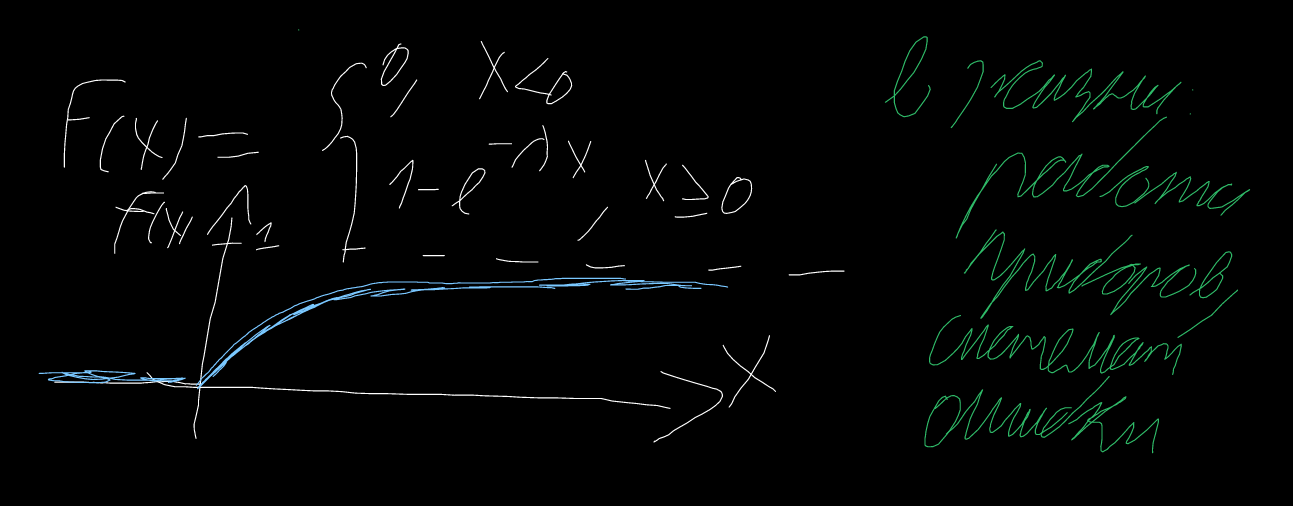 F(x) = { 0, x<0
1 - e^{-λx}, x≥0
F(x)
1
x
в жизни:
работа
приборов,
системат
ошибки